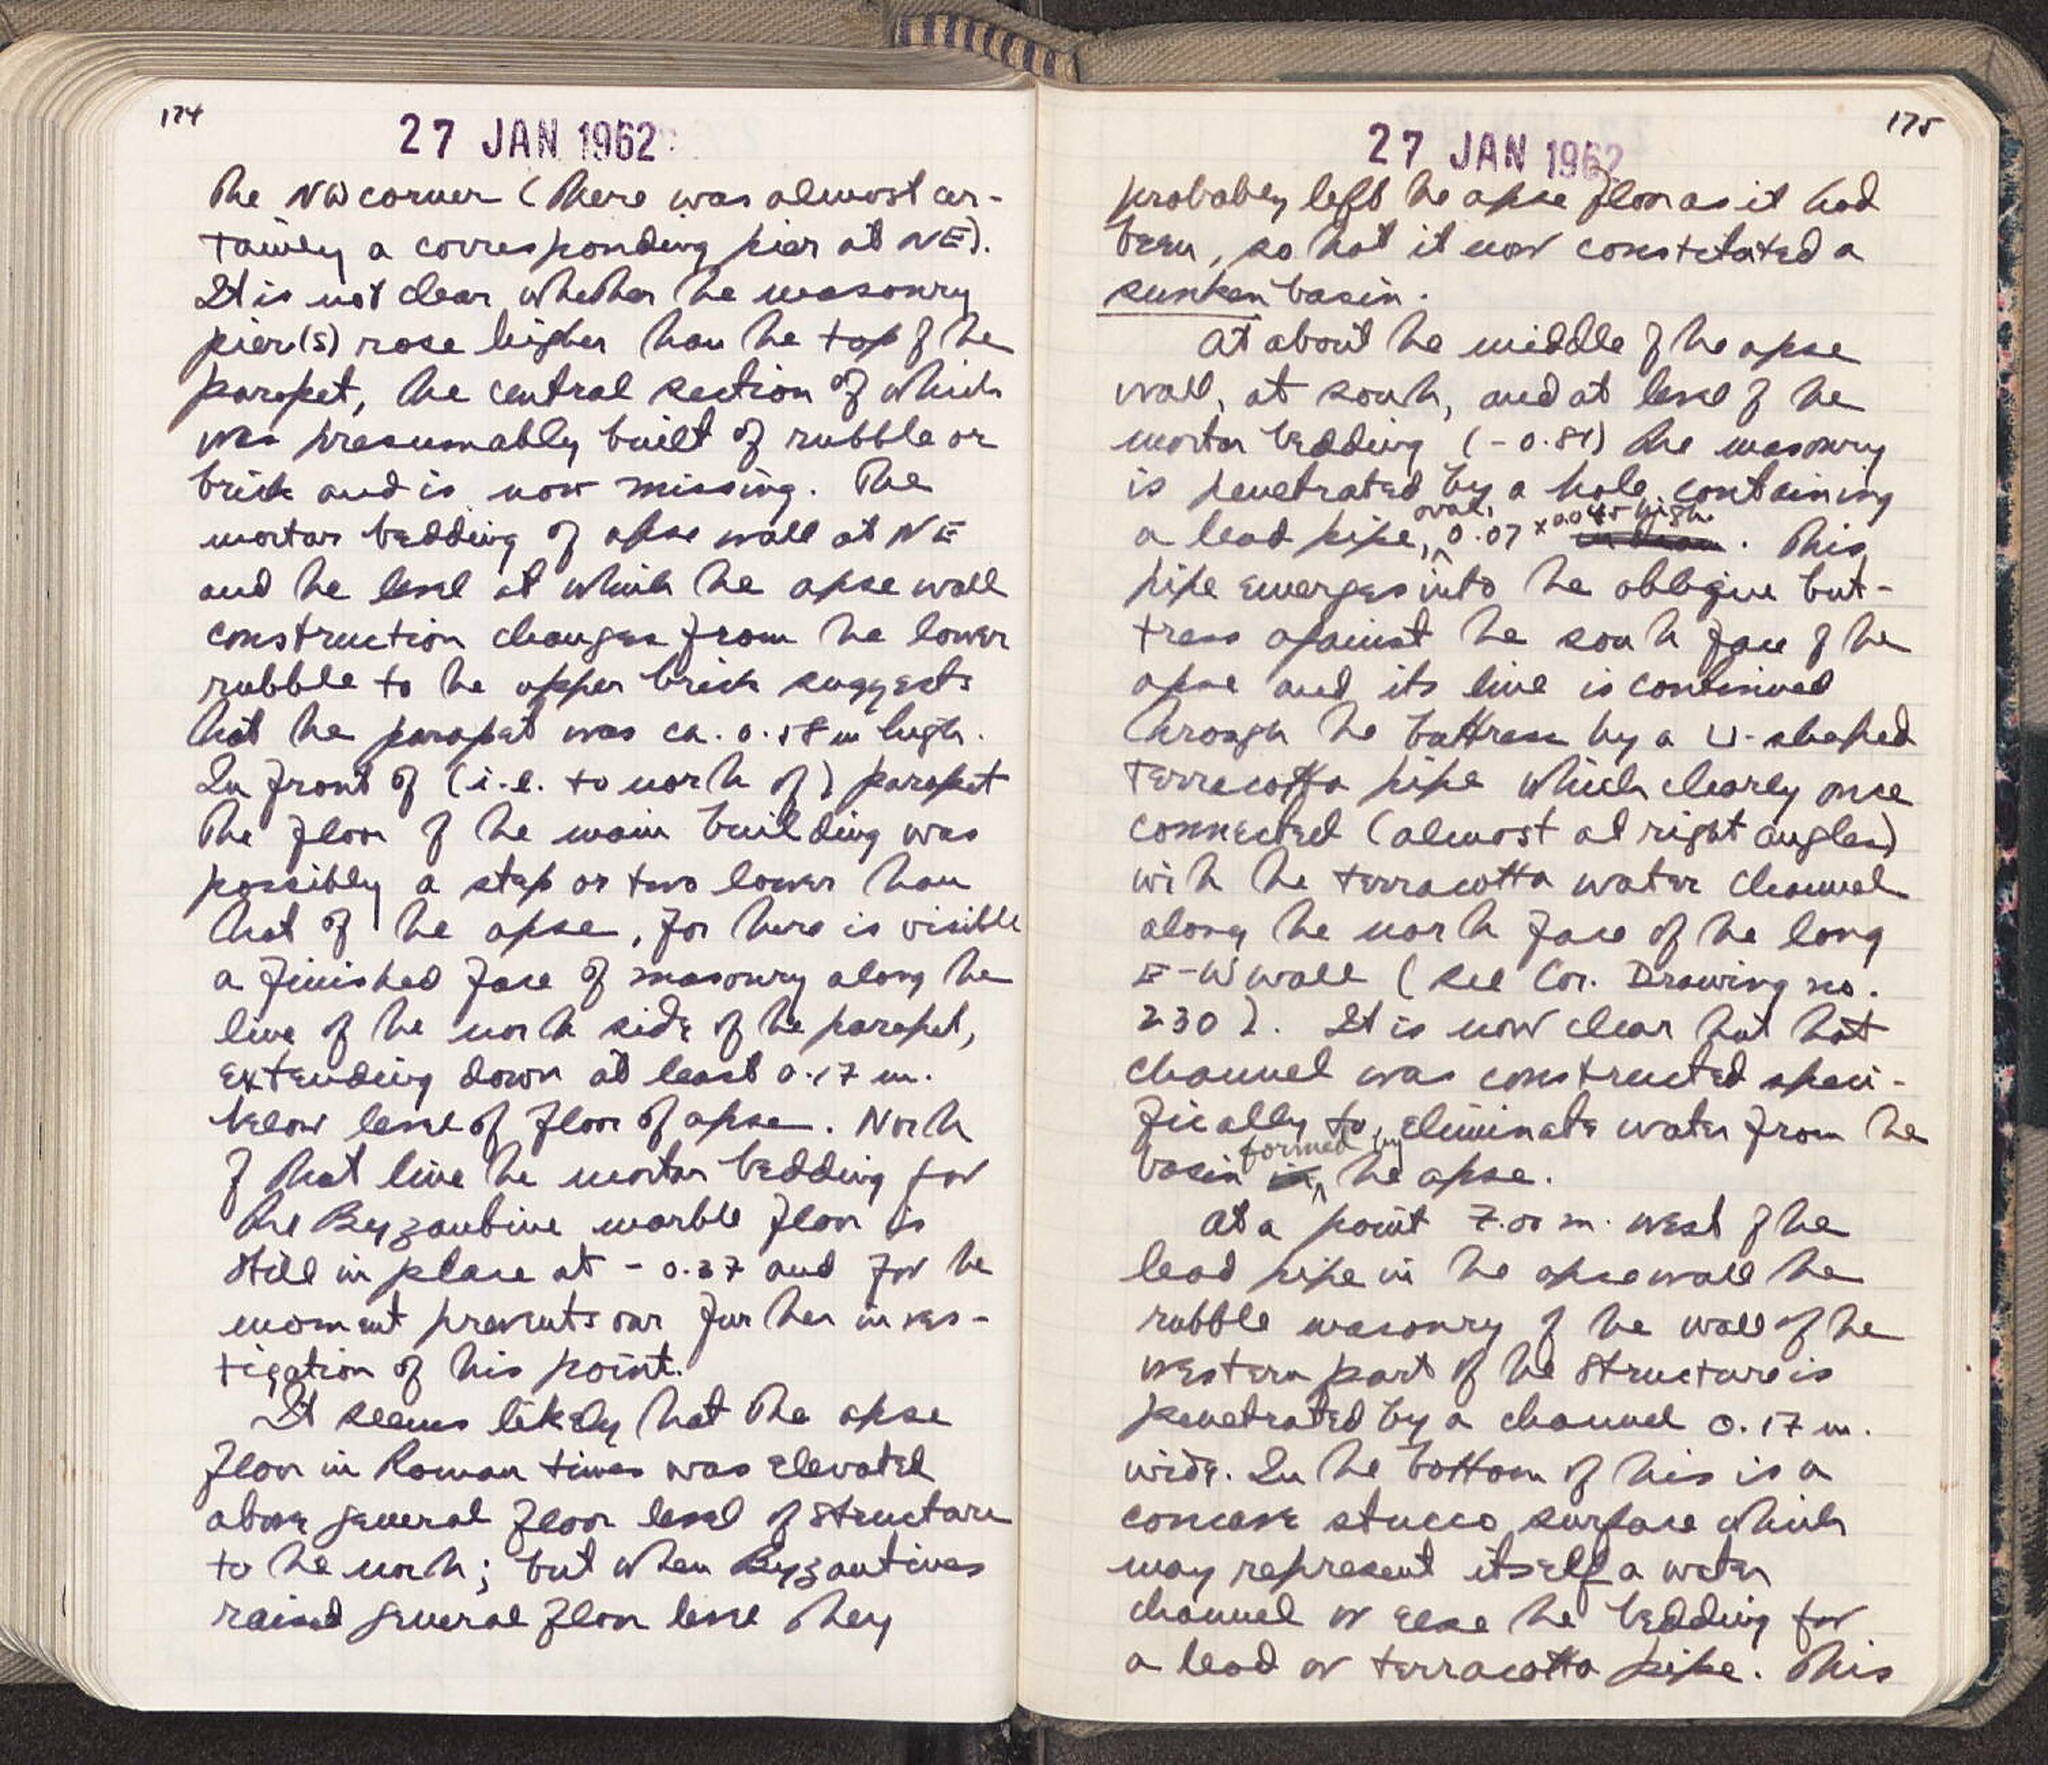 174
27 JAN 1962
the NW corner (there was almost cer-
tainly a corresponding pier at NE).
It is not clear whether the masonry
pier(s) rose higher than the top of the
parapet, the central section of which
was presumably built of rubble or
brick and is now missing. The
mortar bedding of apse wall at NE
and the level at which the apse wall
construction changes from the lower
rubble to the upper brick suggests
that the parapet was ca. 0.58 m high.
In front of (i.e. to north of) parapet
the floor of the main building was
possibly a step or two lower than
that of the apse, for there is visible
a finished face of masonry along the
line of the north side of the parapet,
extending down at least 0.17 m.
below level of floor of apse. North
of that line the mortar bedding for
the Byzantine marble floor is
still in place at - 0.37 and for the
moment prevents our further inves-
tigation of this point.
It seems likely that the apse
floor in Roman times was elevated
above general floor level of structure
to the north; but when Byzantines
raised general floor level they
175
27 JAN 1962
probably left the apse floor as it had
been, so that it now constituted a
sunken basin.
At about the middle of the apse
wall, at south, and at level of the
mortar bedding (- 0.81) the masonry
is penetrated by a hole containing
a lead pipe, oval, 0.07 x 0.045 high. This
pipe emerges into the oblique but-
tress against the south face of the
apse and its line is continued
through the buttress by a U-shaped
terracotta pipe which clearly once
connected (almost at right angles)
with the terracotta water channel
along the north face of the long
E-W wall (see Cor. Drawing no.
230). It is now clear that that
channel was constructed speci-
fically to eliminate water from the
basin formed by the apse.
At a point 7.00 m. west of the
lead pipe in the apse wall the
rubble masonry of the wall of the
western part of the structure is
penetrated by a channel 0.17 m.
wide. In the bottom of this is a
concave stucco surface which
may represent itself a water
channel or else the bedding for
a lead or terracotta pipe. This